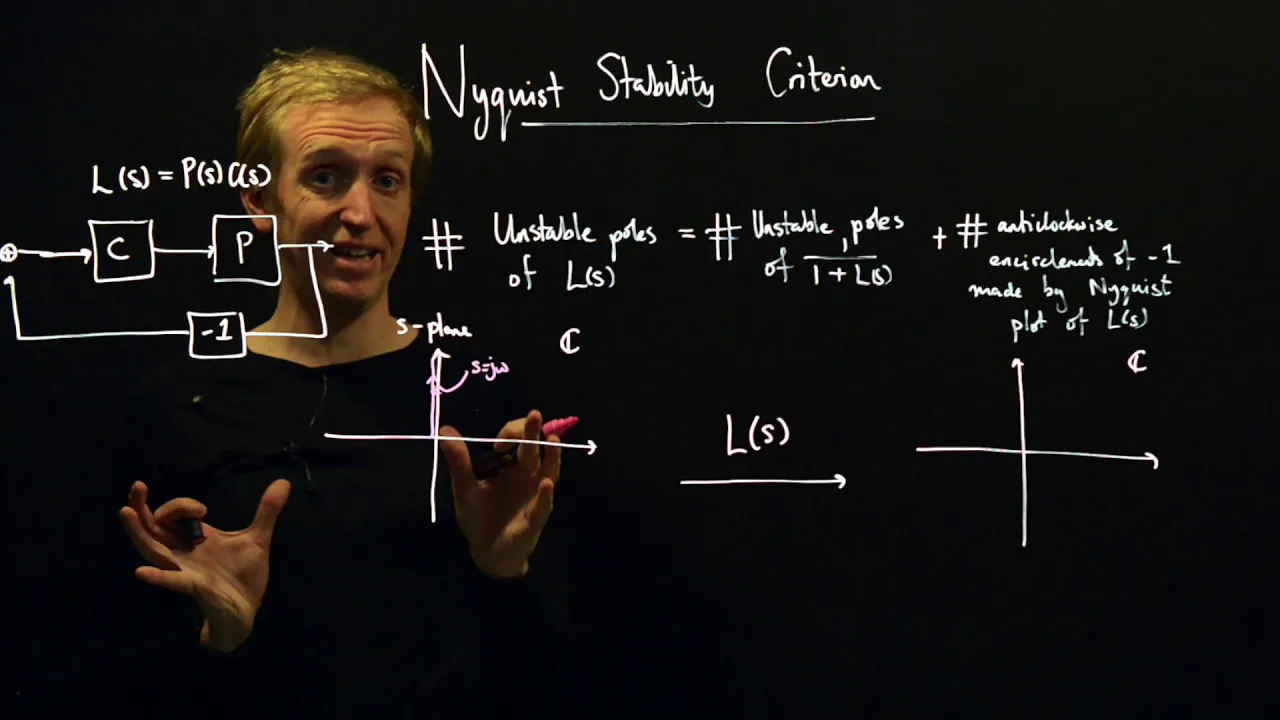 Nyquist Stability Criterion
L(s) = P(s) C(s)
C
P
-1
# Unstable poles of L(s) = # Unstable poles of 1 / 1 + L(s) + # anticlockwise
encirclements of -1
made by Nyquist
plot of L(s)
s-plane
ℂ
s=jω
L(s)
ℂ